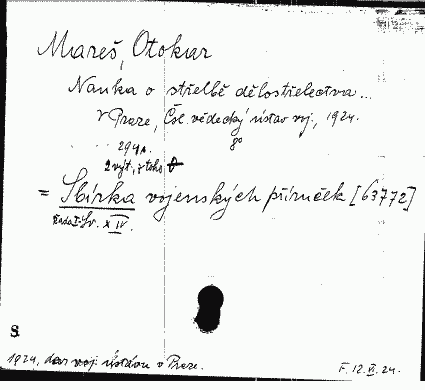 Mareš, Otokar
Nauka o střelbě dělostřelectva...
V Praze, Čsl. vědecký ústav voj., 1924.
8°
294 s.
2 výt. z toho
= Sbírka vojenských příruček [63772]
Řada I. Sv. XIV.
S
1924, dar voj. ústavu v Praze.
F. 12.VI.24.